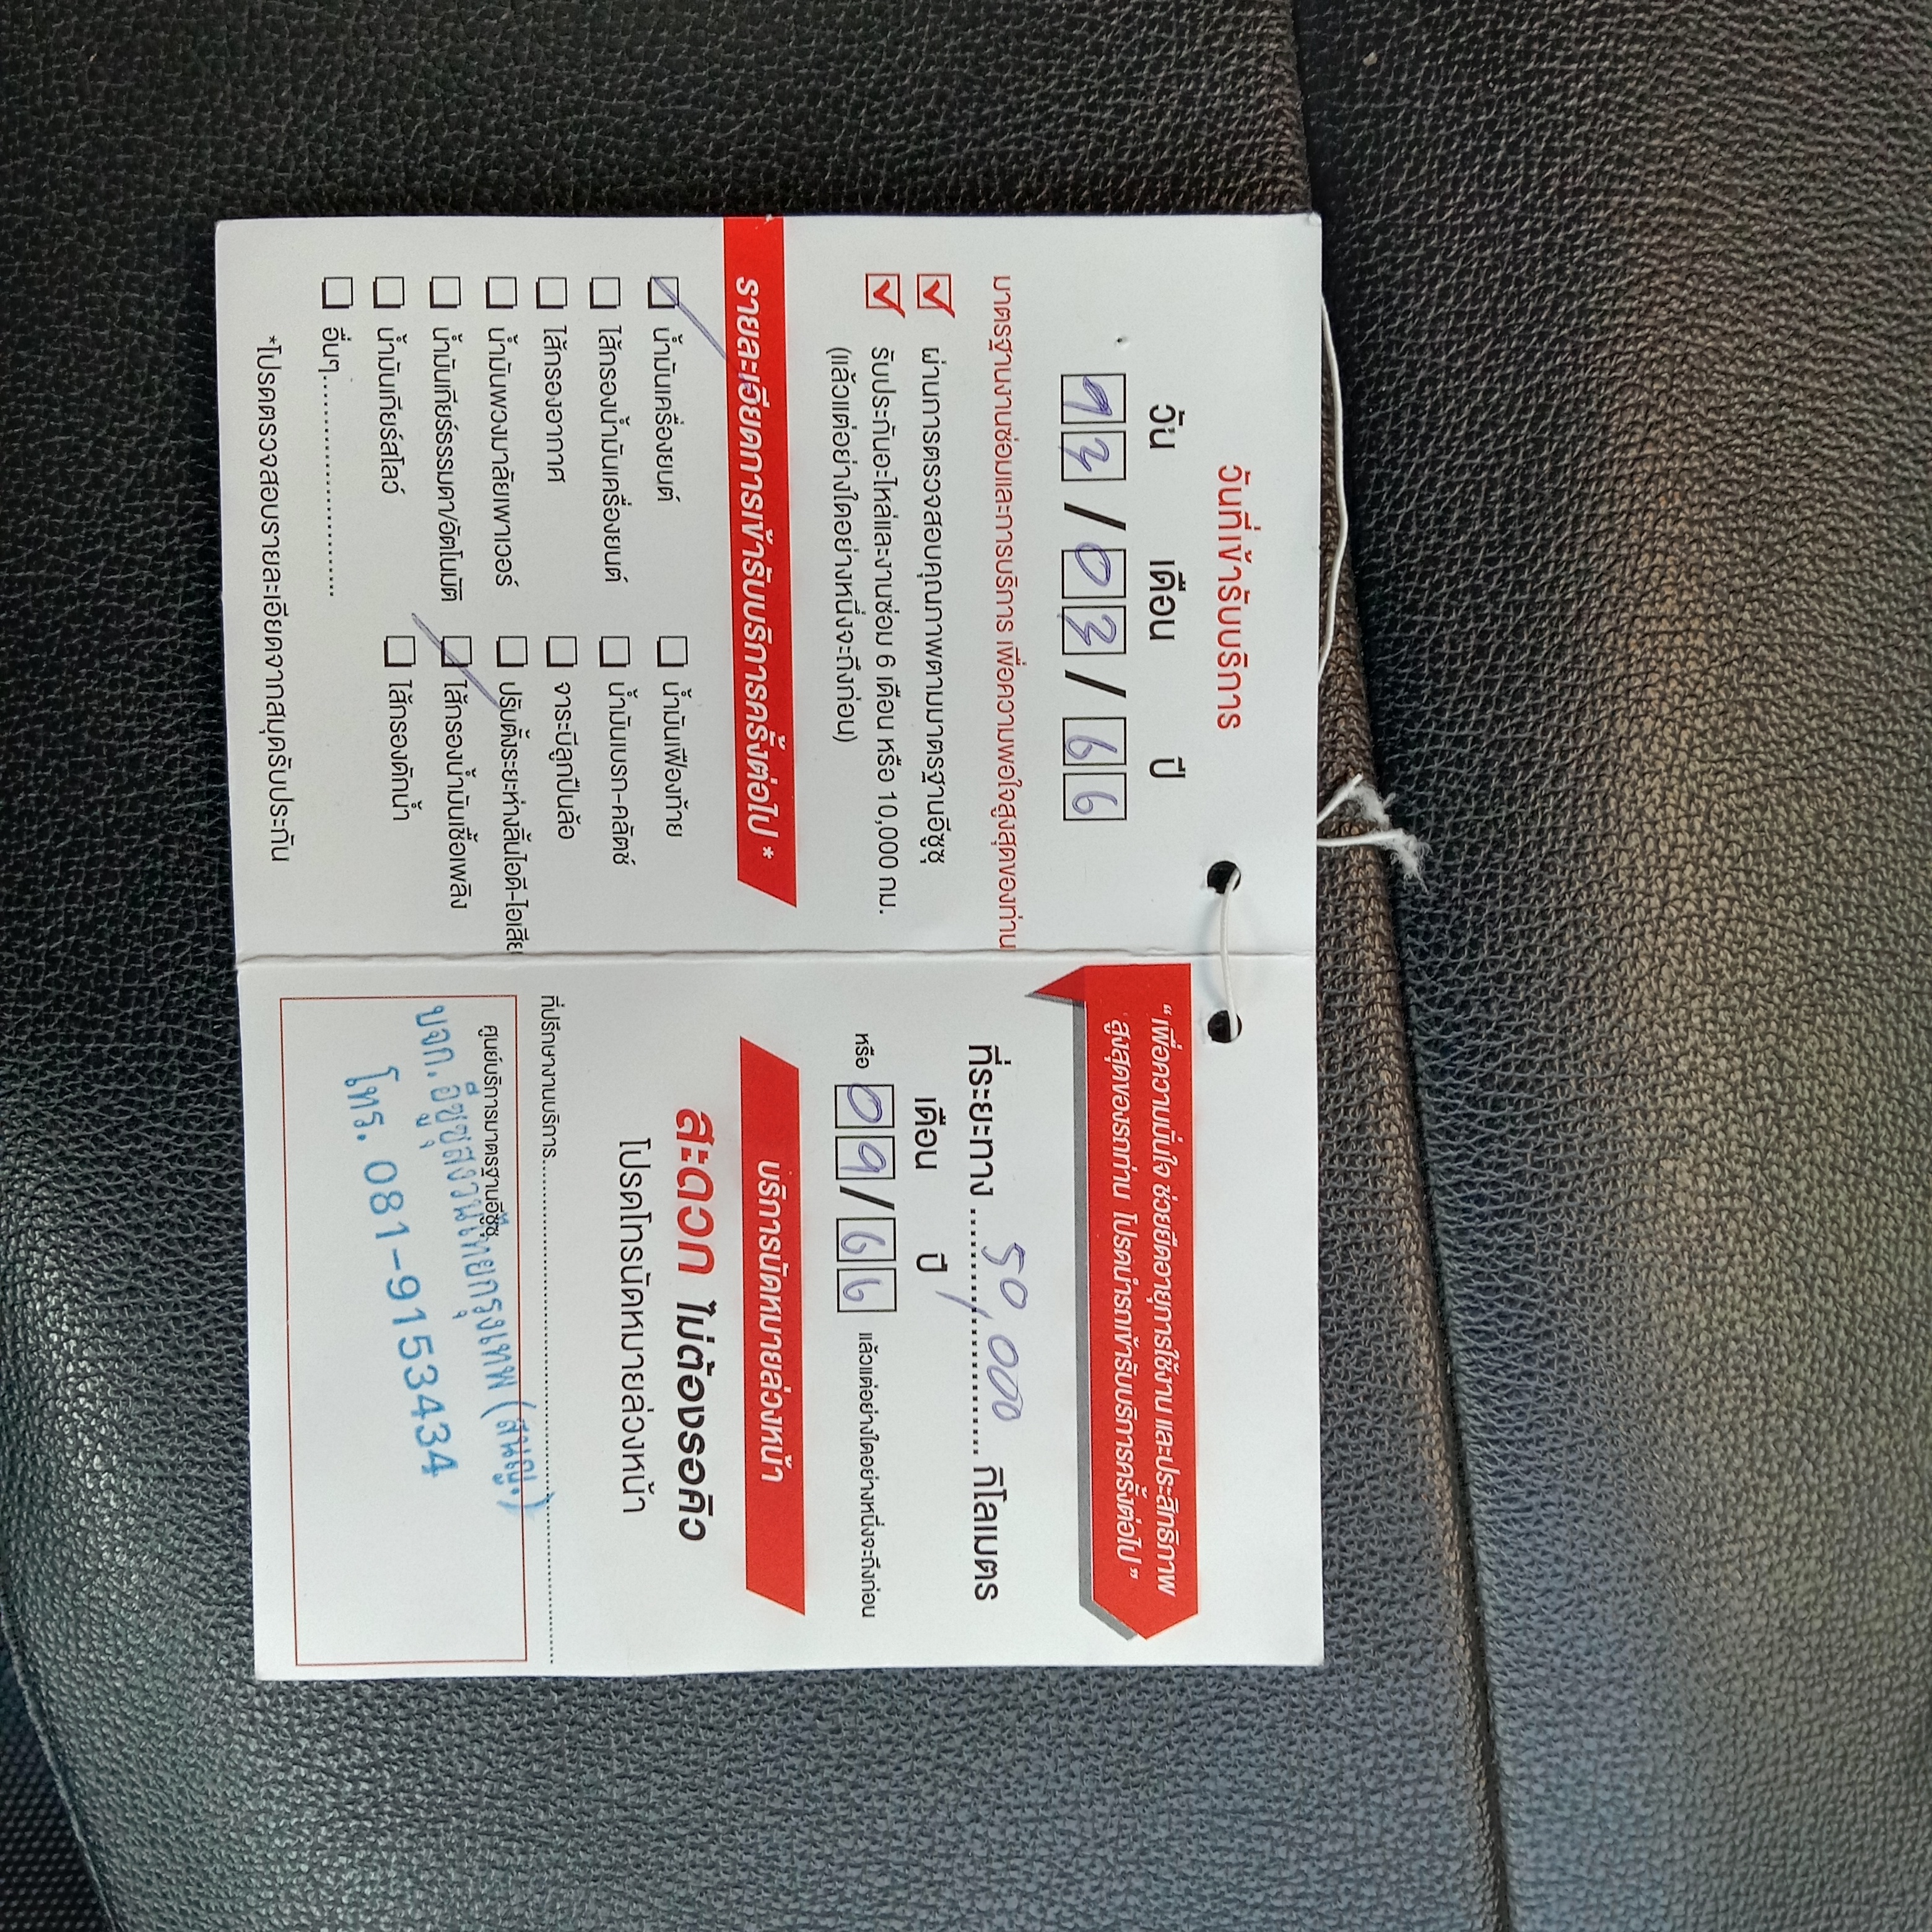 วันที่เข้ารับบริการ
วัน เดือน ปี
13/03/66
มาตรฐานงานซ่อมและการบริการ เพื่อความพอใจสูงสุดของท่าน
ผ่านการตรวจสอบคุณภาพตามมาตรฐานอีซูซุ
รับประกันอะไหล่และงานซ่อม 6 เดือน หรือ 10,000 กม.
(แล้วแต่อย่างใดอย่างหนึ่งจะถึงก่อน)
รายละเอียดการเข้ารับบริการครั้งต่อไป *
น้ำมันเครื่องยนต์
ไส้กรองน้ำมันเครื่องยนต์
ไส้กรองอากาศ
น้ำมันพวงมาลัยเพาเวอร์
น้ำมันเกียร์ธรรมดา/อัตโนมัติ
น้ำมันเกียร์สโลว์
อื่นๆ..............................
น้ำมันเฟืองท้าย
น้ำมันเบรก-คลัตช์
จาระบีลูกปืนล้อ
ปรับตั้งระยะห่างลิ้นไอดี-ไอเสีย
ไส้กรองน้ำมันเชื้อเพลิง
ไส้กรองดักน้ำ
*โปรดตรวจสอบรายละเอียดจากสมุดรับประกัน
"เพื่อความมั่นใจ ช่วยยืดอายุการใช้งาน และประสิทธิภาพ
สูงสุดของรถท่าน โปรดนำรถเข้ารับบริการครั้งต่อไป"
ที่ระยะทาง 50,000 กิโลเมตร
เดือน ปี
หรือ 09/66 แล้วแต่อย่างใดอย่างหนึ่งจะถึงก่อน
บริการนัดหมายล่วงหน้า
สะดวก ไม่ต้องรอคิว
โปรดโทรนัดหมายล่วงหน้า
ที่ปรึกษางานบริการ..............................
ศูนย์บริการมาตรฐานอีซูซุ
บจก.อีซูซุสงวนไทยกรุงเทพ (สนญ.)
โทร. 081-9153434